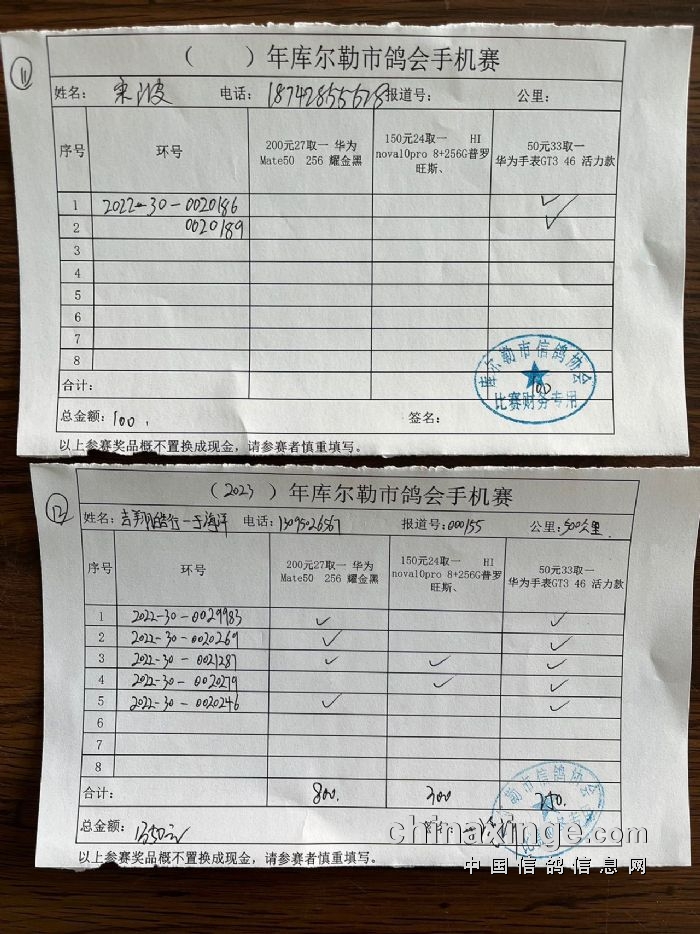 11
（　　）年库尔勒市鸽会手机赛
姓名：宋波 电话：18742855628 报道号： 公里：
序号 环号 200元27取一 华为Mate50 256 耀金黑 150元24取一 HI nova10pro 8+256G普罗旺斯、 50元33取一 华为手表GT3 46 活力款
1 2022-30-0020186 ✓
2 0020189 ✓
3
4
5
6
7
8
合计： 100
库尔勒市信鸽协会
比赛财务专用
总金额：100. 签名：
以上参赛奖品概不置换成现金，请参赛者慎重填写。
12
（2023）年库尔勒市鸽会手机赛
姓名：吉翔 一于海洋 电话：1509026567 报道号：000155 公里：500公里
序号 环号 200元27取一 华为Mate50 256 耀金黑 150元24取一 HI nova10pro 8+256G普罗旺斯、 50元33取一 华为手表GT3 46 活力款
1 2022-30-0029983 ✓ ✓
2 2022-30-0020269 ✓ ✓
3 2022-30-0021287 ✓ ✓ ✓
4 2022-30-0020279 ✓ ✓
5 2022-30-0020246 ✓ ✓
6
7
8
合计： 800. 300 250.
总金额：1350元
以上参赛奖品概不置换成现金，请参赛者慎重填写。
chinaxinge.com
中国信鸽信息网